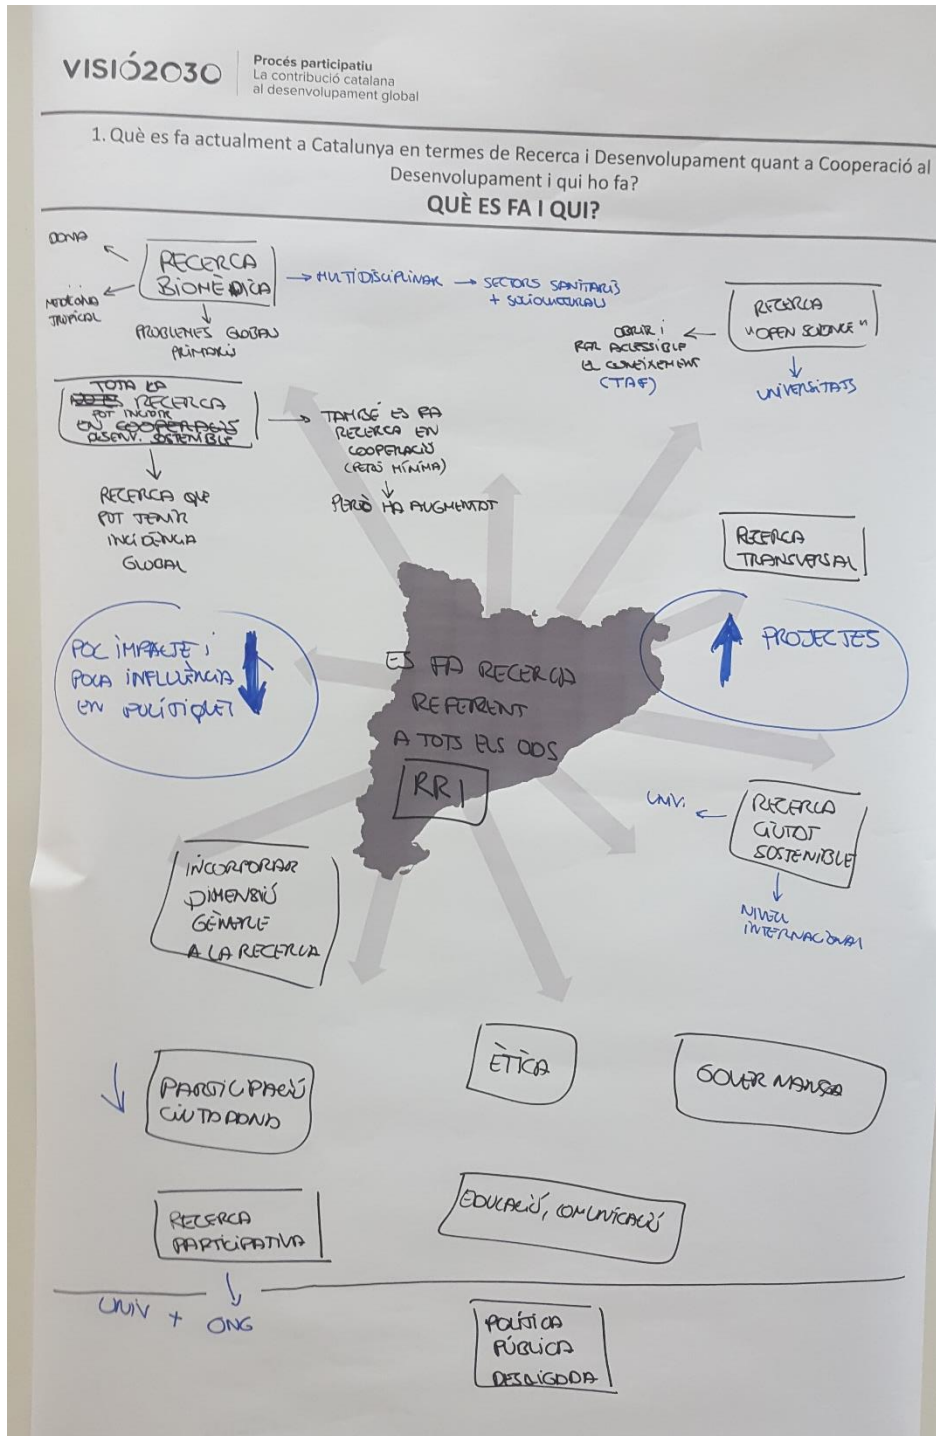 VISIÓ2030
Procés participatiu
La contribució catalana
al desenvolupament global
1. Què es fa actualment a Catalunya en termes de Recerca i Desenvolupament quant a Cooperació al
Desenvolupament i qui ho fa?
QUÈ ES FA I QUI?
DONA
RECERCA
BIOMÈDICA
MEDICINA
TROPICAL
PROBLEMES GLOBALS
PRIMARIS
MULTIDISCIPLINAR → SECTORS SANITARIS
+ SOCIOCULTURALS
RECERCA
"OPEN SCIENCE"
OBRIR I
FER ACCESSIBLE
EL CONEIXEMENT
UNIVERSITATS
TOTA LA
RECERCA
POT INCIDIR
EN COOPERACIÓ
DESENV. SOSTENIBLE
TAMBÉ ES FA
RECERCA EN
COOPERACIÓ
(PERÒ MÍNIMA)
PERÒ HA AUGMENTAT
RECERCA QUE
POT TENIR
INCIDÈNCIA
GLOBAL
RECERCA
TRANSVERSAL
POC IMPACTE I
POCA INFLUÈNCIA
EN POLÍTIQUES
PROJECTES
ES FA RECERCA
REFERENT
A TOTS ELS ODS
RRI
UNIV.
RECERCA
CIUTAT
SOSTENIBLE
NIVELL
INTERNACIONAL
INCORPORAR
DIMENSIÓ
GÈNERE
A LA RECERCA
PARTICIPACIÓ
CIUTADANA
ÈTICA
GOVERNANÇA
RECERCA
PARTICIPATIVA
EDUCACIÓ, COMUNICACIÓ
UNIV + ONG
POLÍTICA
PÚBLICA
DESLIGADA